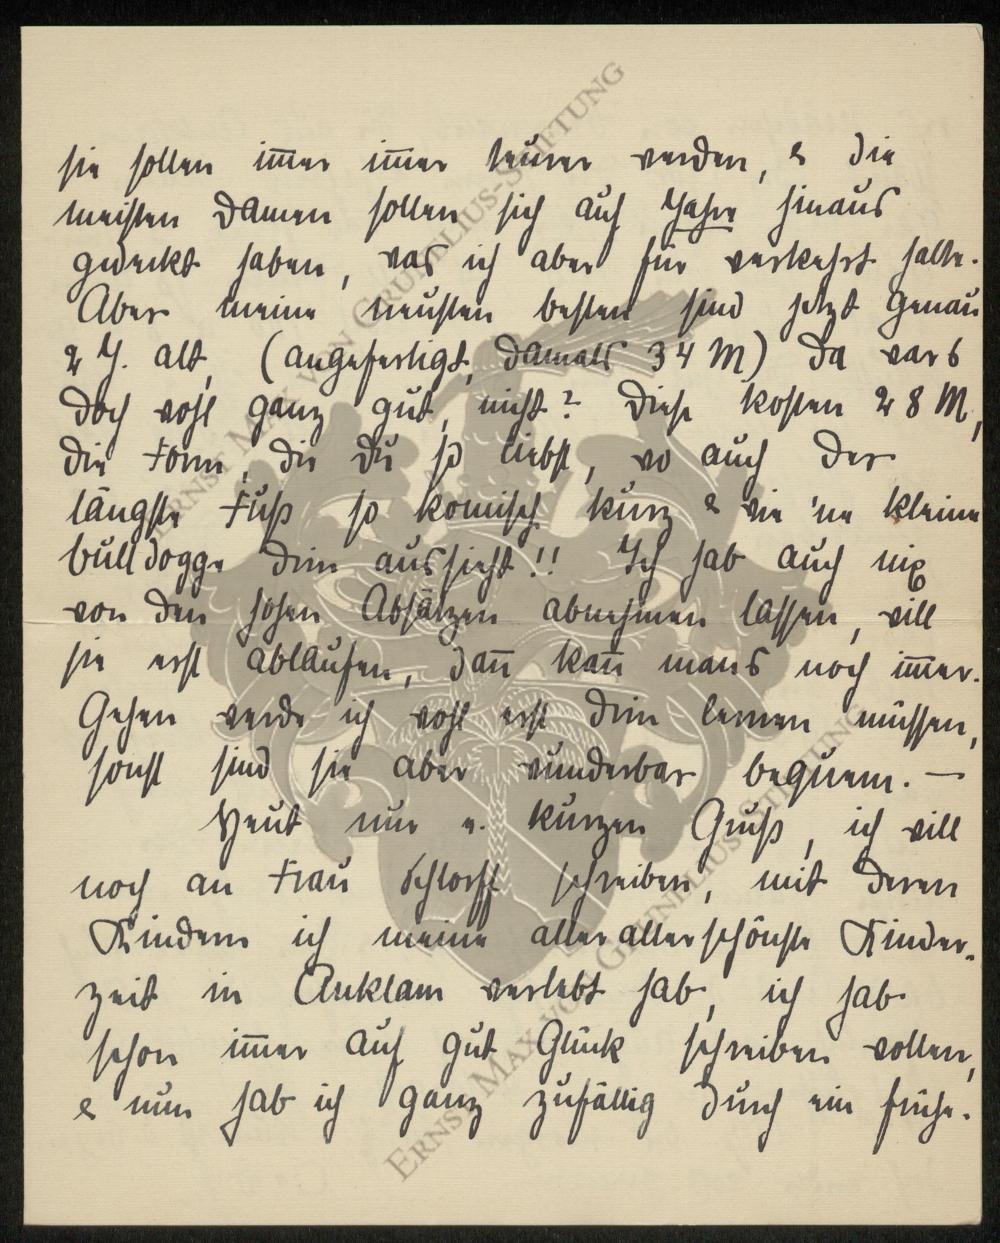 sie sollen im̅er im̅er teurer werden, & die
meisten Damen sollen sich auf Jahre hinaus
gedeckt haben, was ich aber für verkehrt halte.
Aber meine neusten besten sind jetzt genau
2 J. alt, (angefertigt, damals 34 M) da wars
doch wohl ganz gut, nicht? Diese kosten 28 M,
die Form, die Du so liebst, wo auch der
längste Fuß so komisch kurz & wie 'ne kleine
bulldogge drin aussieht!! Ich hab auch nix
von den hohen Absätzen abnehmen lassen, will
sie erst ablaufen, dan̅ kan̅ mans noch im̅er.
Gehen werde ich wohl erst drin lernen müssen,
sonst sind sie aber wunderbar bequem. —
Heut nur e. kurzen Gruß, ich will
noch an Frau Schlorff schreiben, mit deren
Kindern ich meine allerallerschönste Kinder-
zeit in Anklam verlebt hab, ich hab
schon im̅er auf gut Glück schreiben wollen,
& nun hab ich ganz zufällig durch ein frühe-
ERNST MAX VON GRUNELIUS-STIFTUNG
ERNST MAX VON GRUNELIUS-STIFTUNG